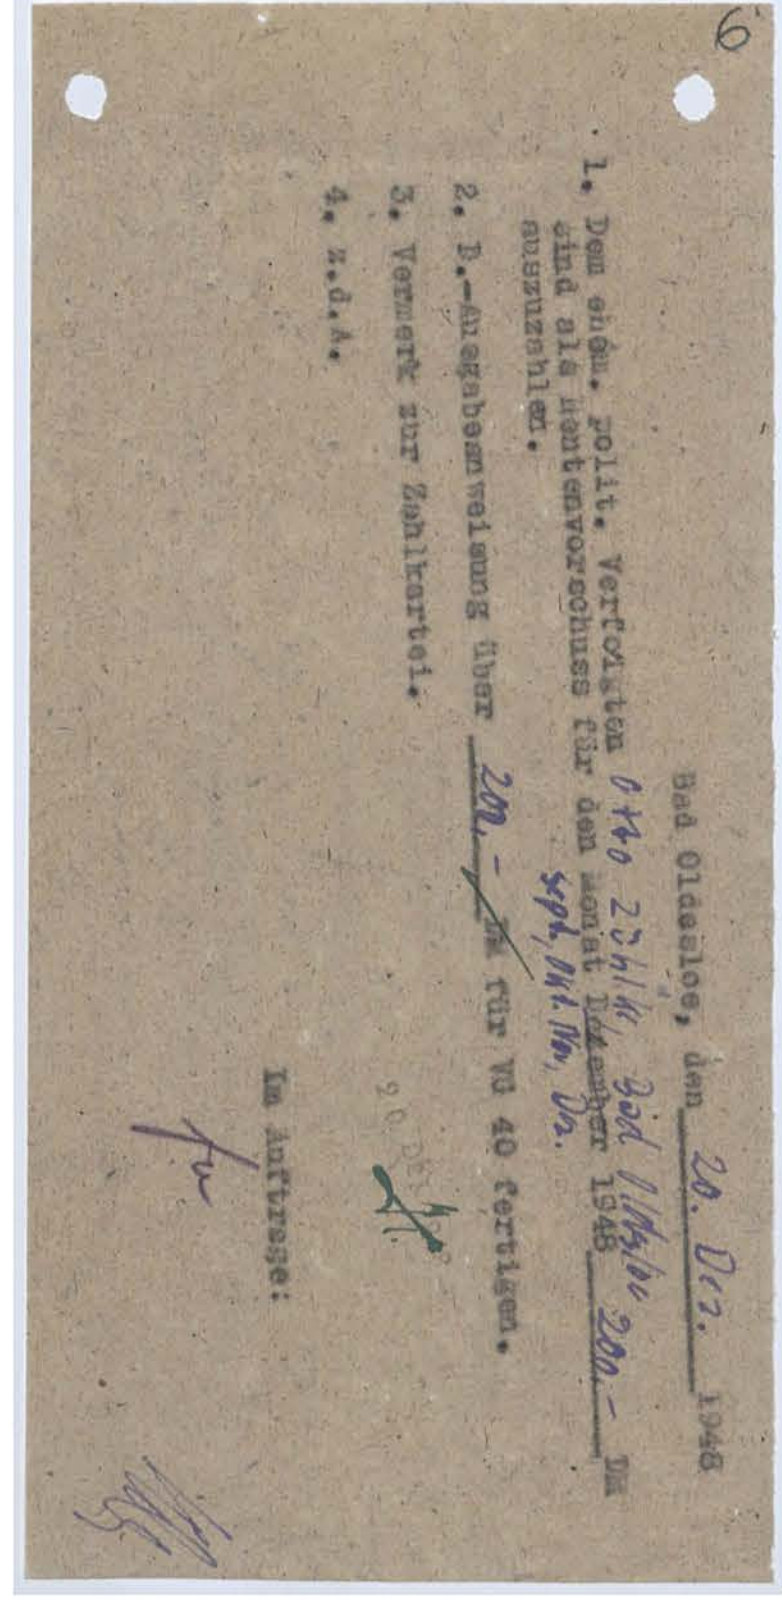 6
Bad Oldesloe, den 20. Dez. 1948
1. Dem ehem. polit. Verfolgten Otto Zühlk, Bad Oldesloe
sind als Rentenvorschuss für den Monat Dezember 1948 200.- DM
Sept, Okt. Nov, Dez.
auszuzahlen.
2. D.-Ausgabeanweisung über 200.- DM für VU 40 fertigen.
3. Vermerk zur Zahlkartei.
20. DEZ.
4. Z.d.A.
Im Auftrage: